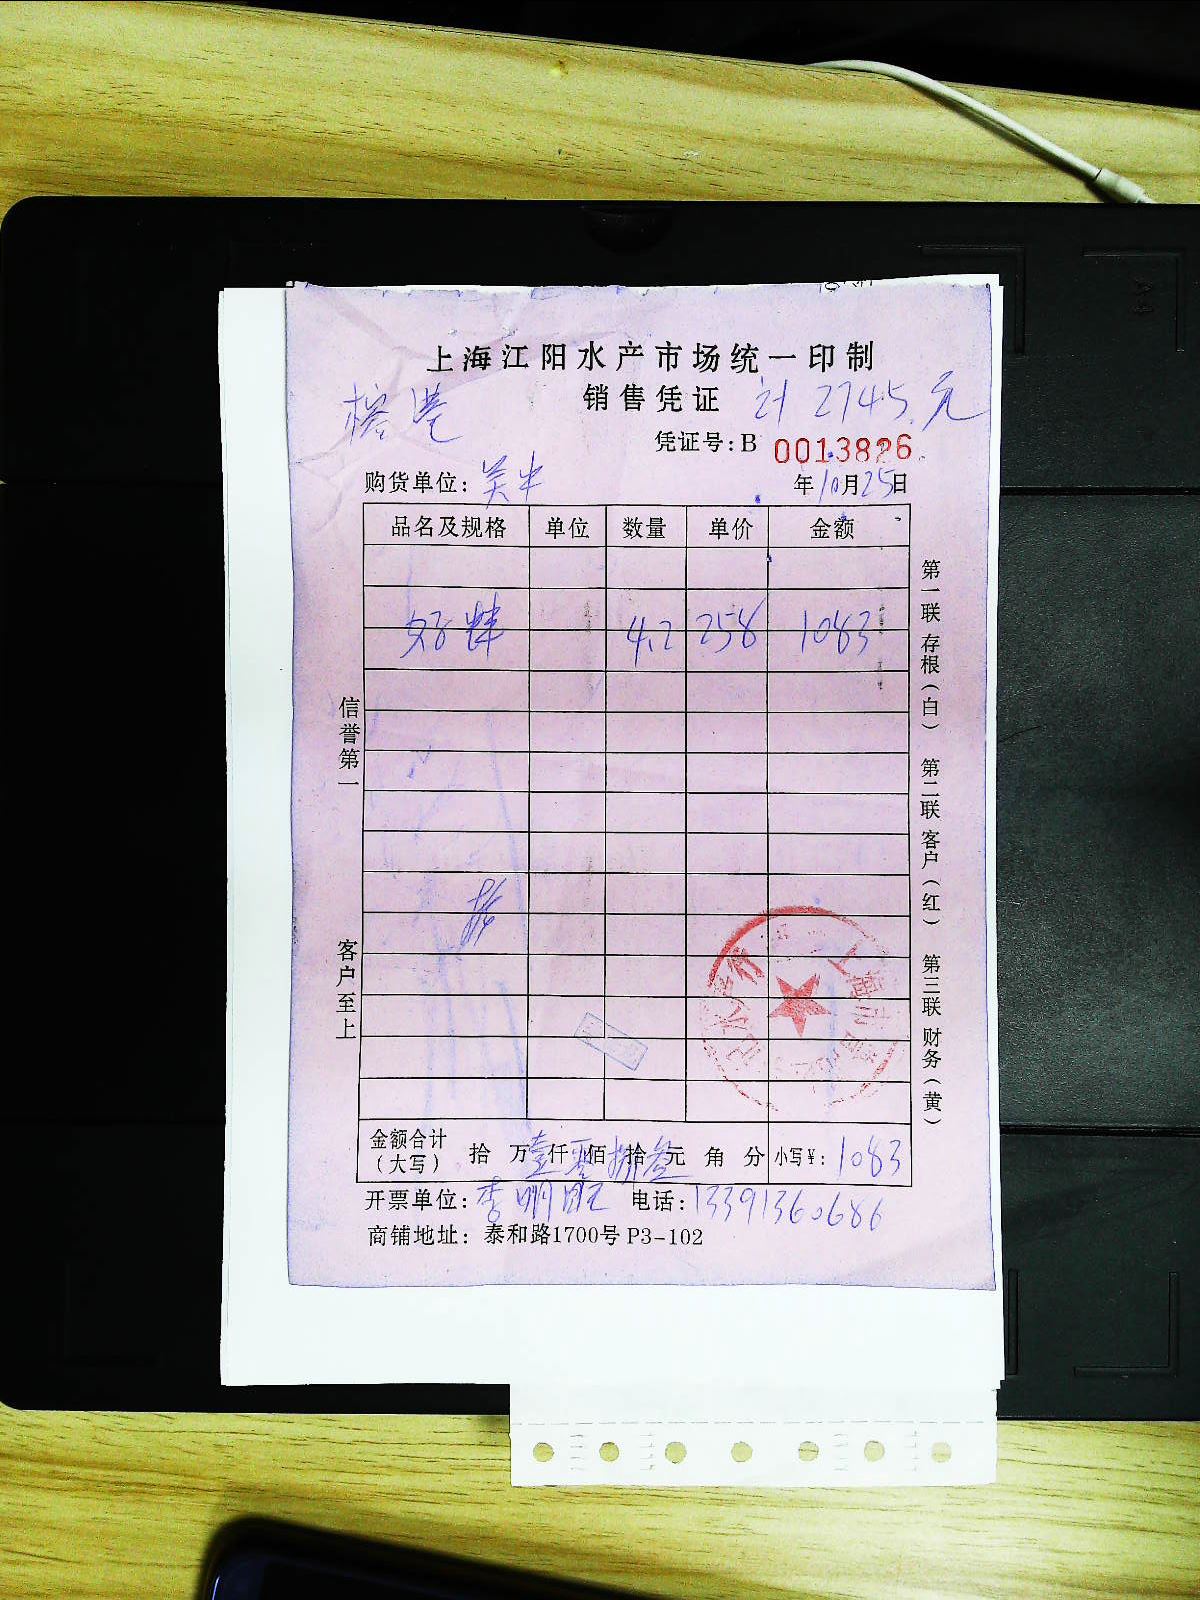 上海江阳水产市场统一印制
销售凭证 计 2745.元
榕港
凭证号:B 0013826
购货单位: 关中 年10月25日
品名及规格 单位 数量 单价 金额
4.2 258 1083
信誉第一
客户至上
第一联 存根(白) 第二联 客户(红) 第三联 财务(黄)
金额合计(大写) 拾 万壹仟零佰捌拾叁元 角 分 小写¥: 1083
开票单位: 李明旺 电话: 13391360686
商铺地址: 泰和路1700号 P3-102